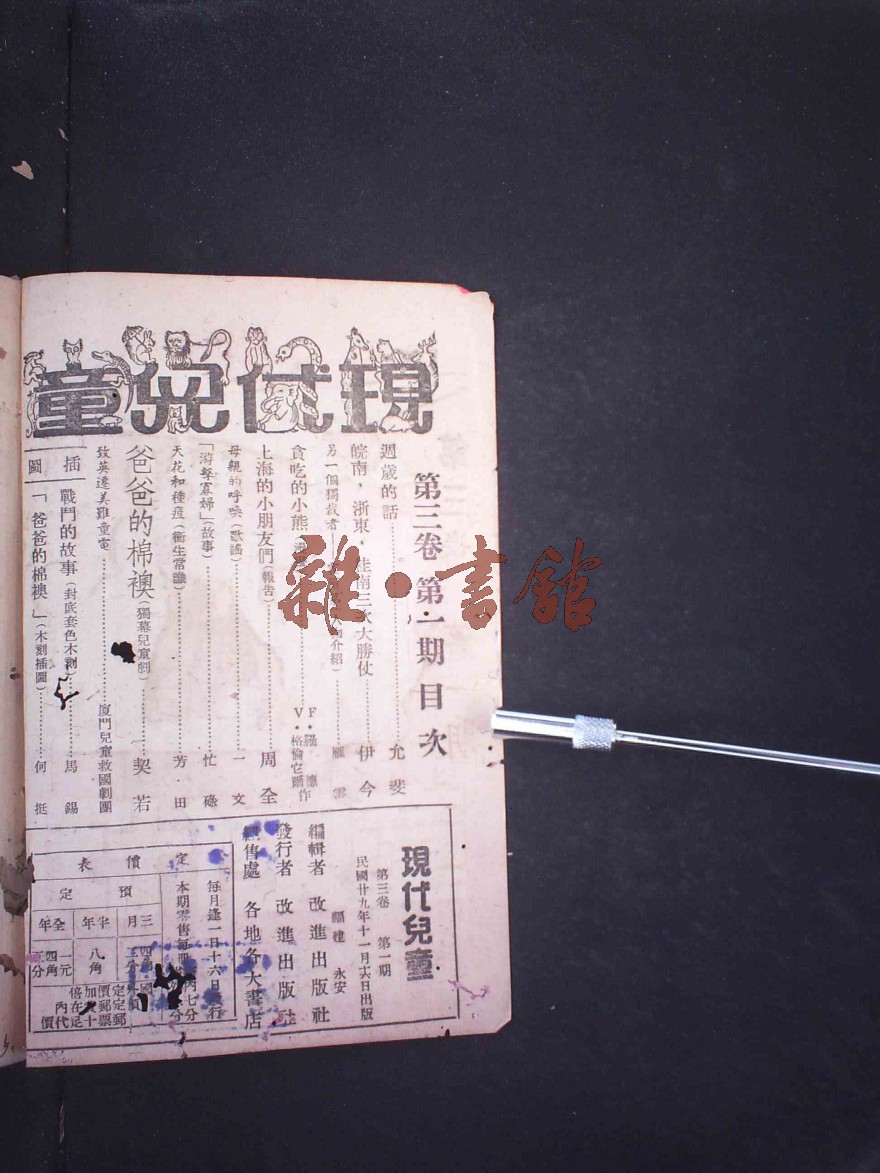 現代兒童
第三卷 第一期 目次
週歲的話………允斐
皖南，浙東，桂南三次大勝仗………伊今
另一個獨裁者——介紹）………雁雲
貪吃的小熊 F·羅 應作 V·格倫它爾
上海的小朋友們（報告）………周全
母親的呼喚（歌謠）………一文
「游擊寡婦」（故事）………忙碌
天花和種痘（衞生常識）………芳·田
爸爸的棉襖（獨幕兒童劇）………契若
致英遭美難童電………廈門兒童救國劇團
插圖
戰鬥的故事（封底套色木刻）………馬錫
「爸爸的棉襖」（木刻插圖）………何挺
現代兒童
第三卷 第一期
民國廿九年十一月十六日出版
福建 永安
編輯者 改進出版社
發行者 改進出版社
經售處 各地各大書店
每月逢一日十六日發行
本期零售每冊 七分
定價表
預定
三月
半年 八角
全年 一元四角三分
雜·書館